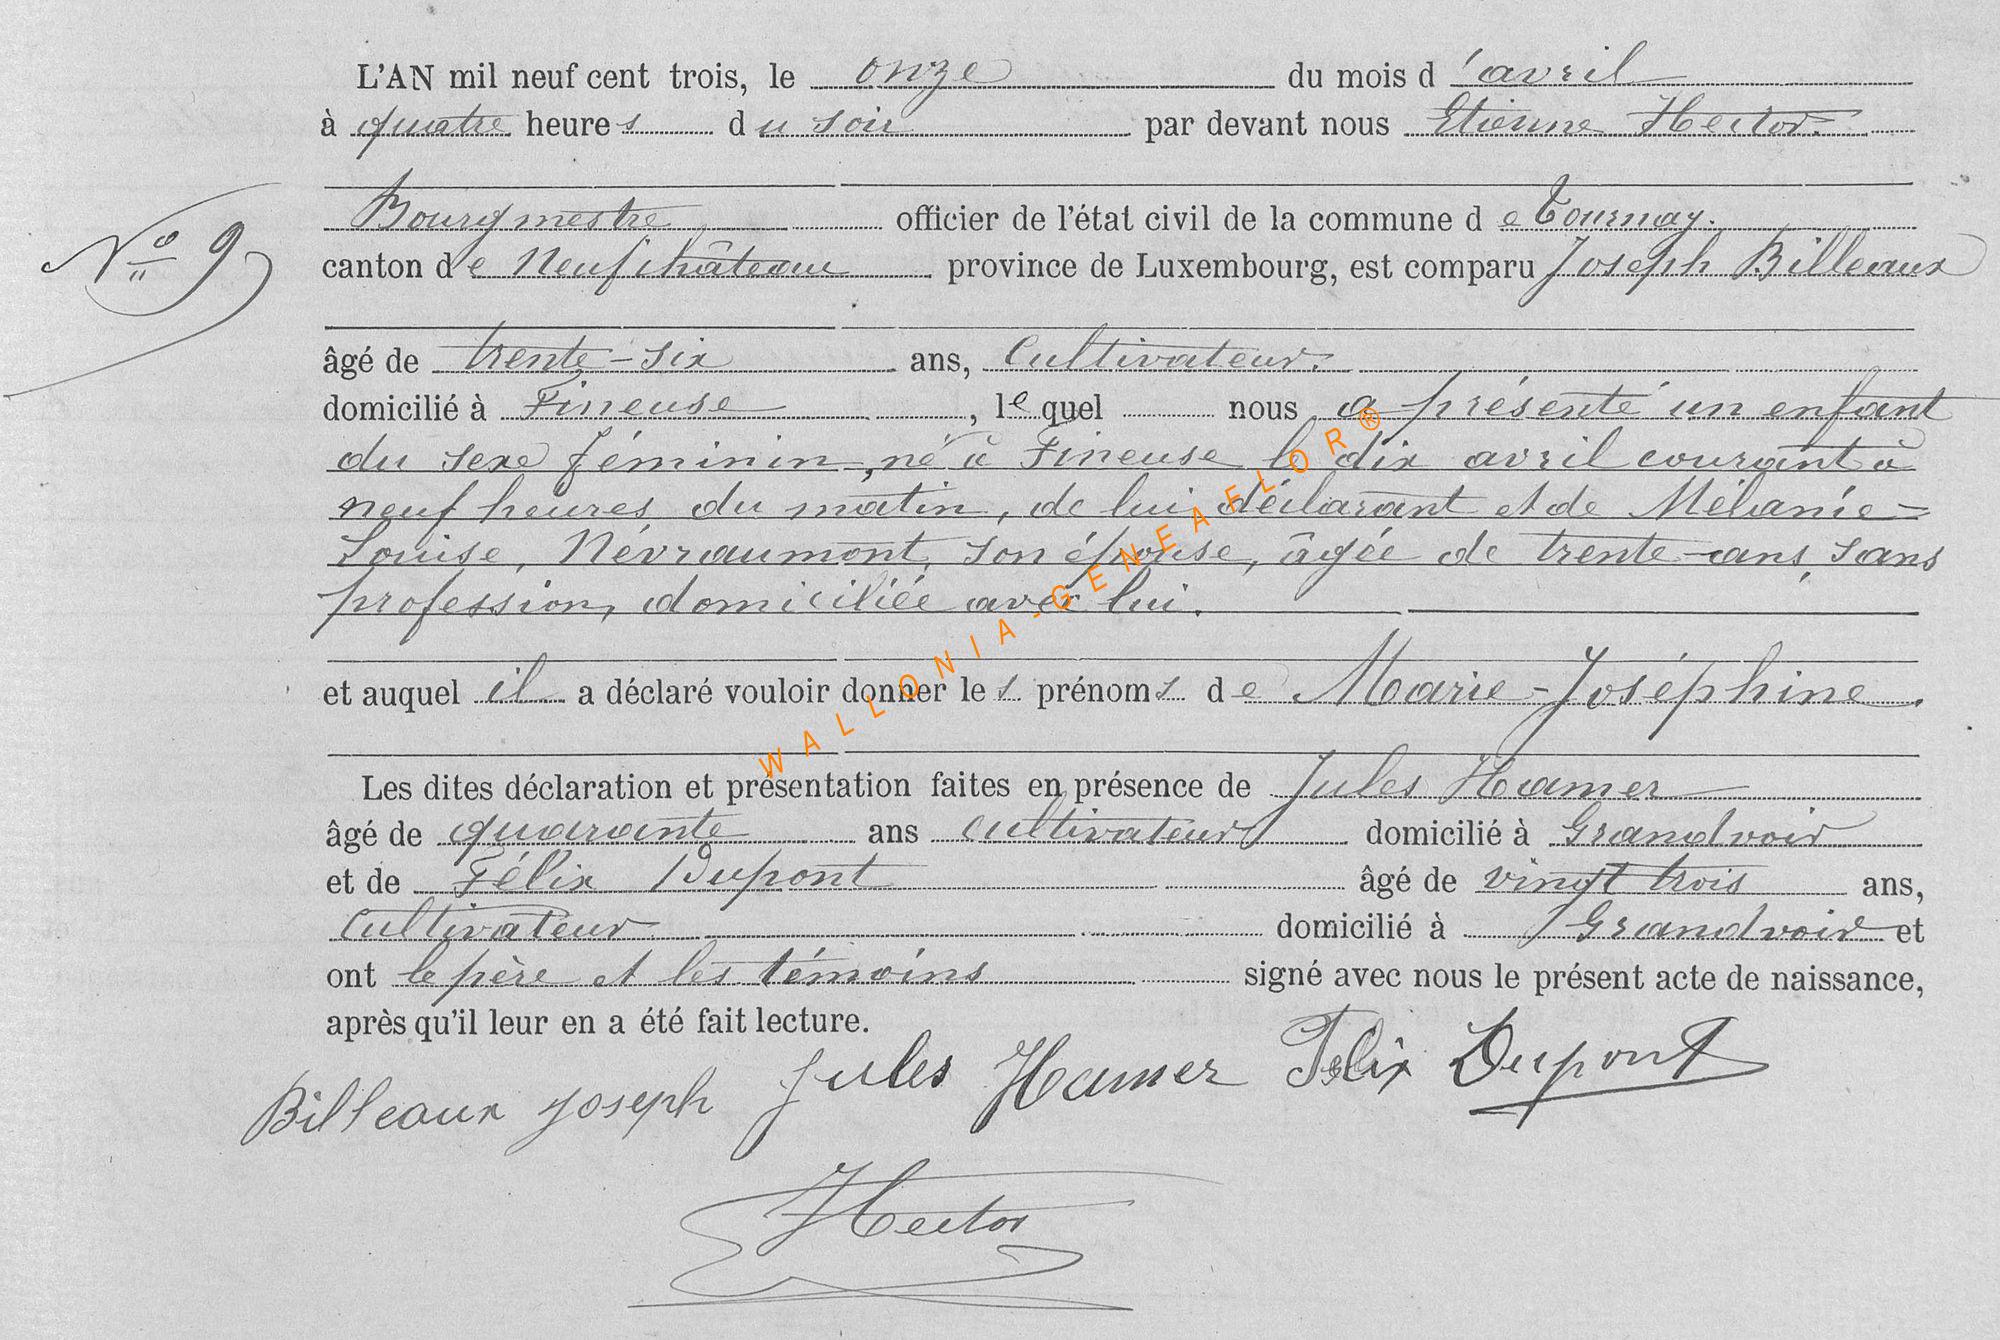 L'AN mil neuf cent trois, le onze du mois d'avril
à quatre heures du soir par devant nous Etienne Hector.
Bourgmestre officier de l'état civil de la commune de Tournay.
No 9
canton de Neufchâteau province de Luxembourg, est comparu Joseph Billeaux
âgé de trente-six ans, Cultivateur.
domicilié à Fineuse, lequel nous a présenté un enfant
du sexe féminin, né à Fineuse le dix avril courant à
neuf heures du matin, de lui déclarant et de Mélanie-
Louise, Névraumont, son épouse, âgée de trente ans, sans
profession, domiciliée avec lui.
et auquel il a déclaré vouloir donner les prénoms de Marie-Joséphine.
Les dites déclaration et présentation faites en présence de Jules Hamer
âgé de quarante ans cultivateur domicilié à Grandvoir
et de Félix Dupont âgé de vingt trois ans,
Cultivateur domicilié à Grandvoir et
ont le père et les témoins signé avec nous le présent acte de naissance,
après qu'il leur en a été fait lecture.
Billeaux Joseph Jules Hamer Felix Dupont
Hector
WALLONIA-GENEAFLOR®